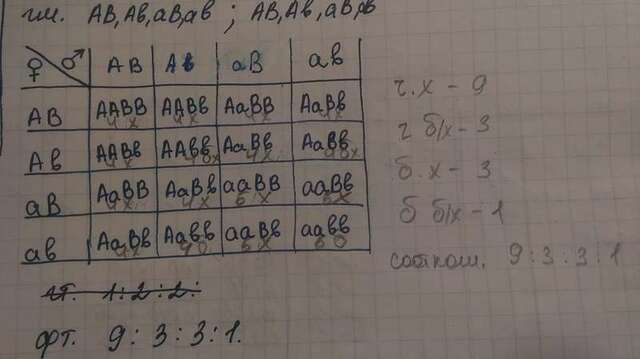 АВ, Ав, аВ, ав ; АВ, Ав, аВ, ав
♀ ♂ АВ Ав аВ ав
АВ ААВВ ААВв АаВВ АаВв
Ав ААВв ААвв АаВв Аавв
аВ АаВВ АаВв ааВВ ааВв
ав АаВв Аавв ааВв аавв
г. х - 9
г б/х - 3
б. х - 3
б б/х - 1
9 : 3 : 3 : 1
1 : 2 : 2 :
фт. 9 : 3 : 3 : 1.